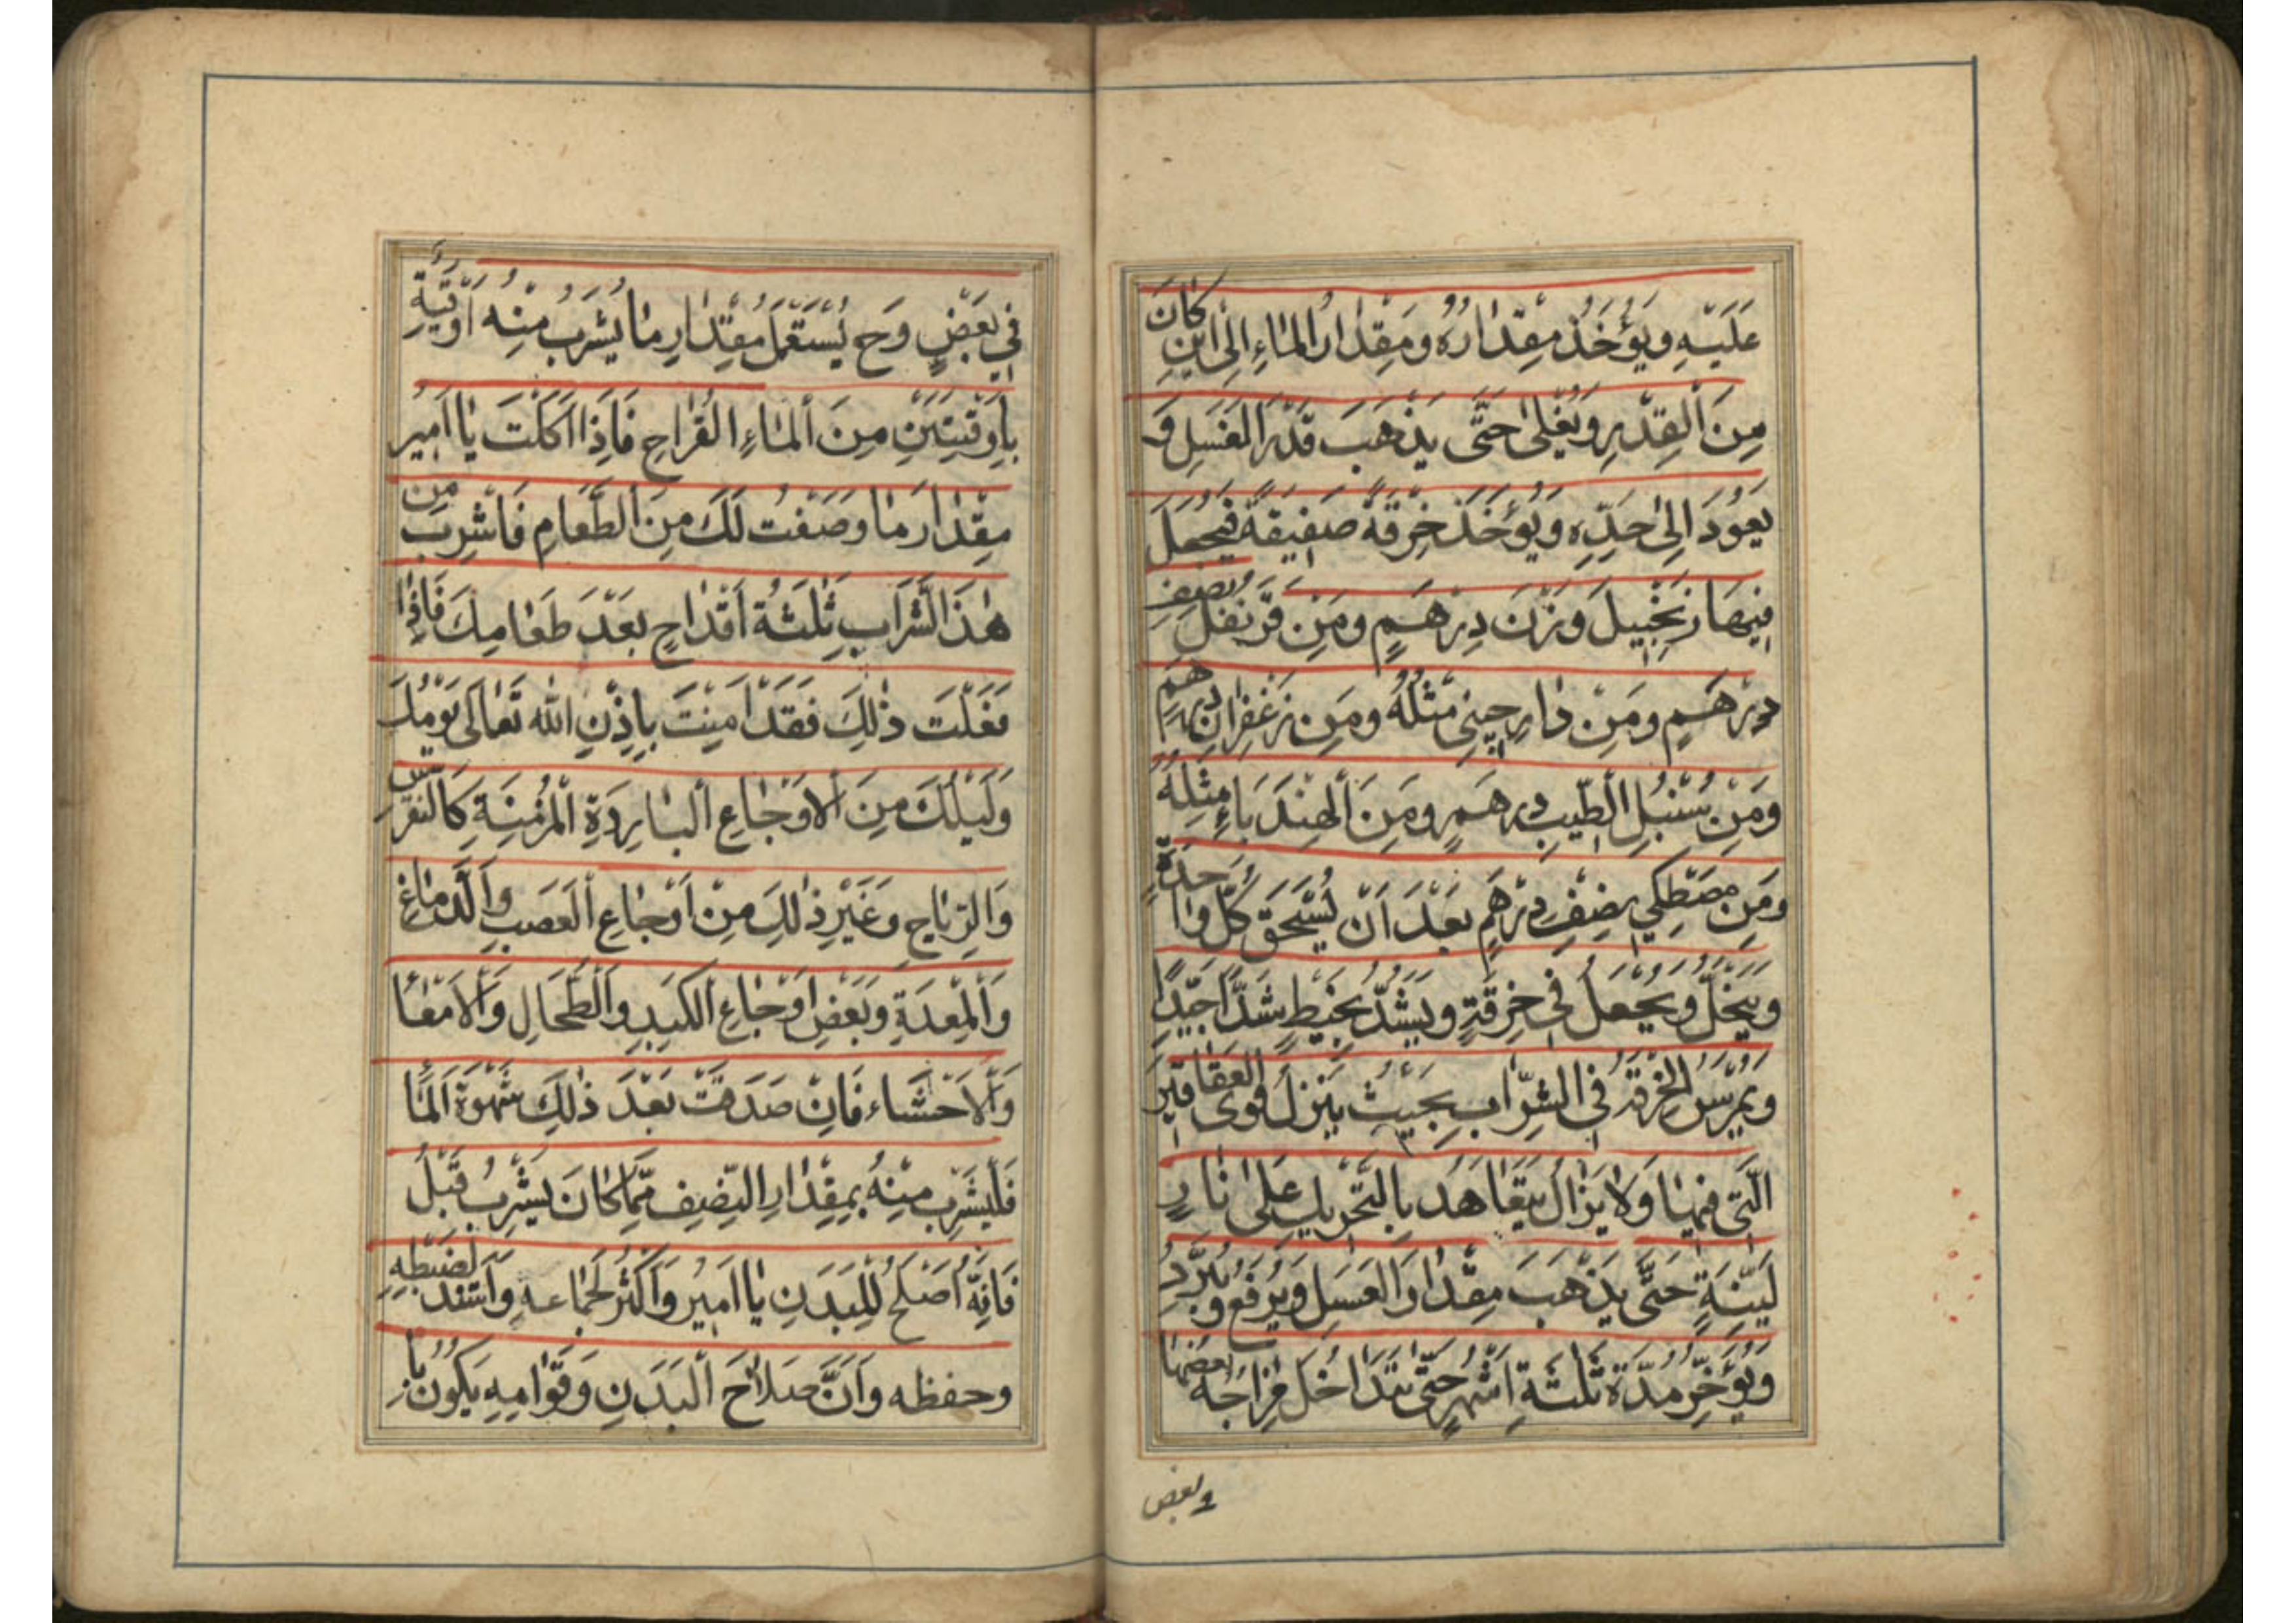 عَلَيْهِ وَيُؤْخَذُ مِقْدَارُهُ وَمِقْدَارُ الْمَاءِ اِلٰى اَيْنَ كَانَ
مِنَ الْقِدْرِ وَيُغْلٰى حَتّٰى يَذْهَبَ قَدْرُ الْعَسَلِ وَ
يَعُوْدَ اِلٰى حَدِّهِ وَيُؤْخَذُ خِرْقَةً صَفِيْقَةً فَيُجْعَلُ
فِيْهَا زَنْجَبِيْلَ وَزْنَ دِرْهَمٍ وَمِنْ قَرَنْفُلَ نِصْفِ
دِرْهَمٍ وَمِنْ دَارِچِيْنِي مِثْلُهُ وَمِنْ زَعْفَرَانِ دِرْهَمٍ
وَمِنْ سُنْبُلِ الطِّيْبِ دِرْهَمٍ وَمِنَ الْهِنْدَبَاءِ مِثْلُهُ
وَمِنْ مَصْطَكِي نِصْفِ دِرْهَمٍ بَعْدَ اَنْ يُسْحَقَ كُلُّ وَاحِدَةٍ
وَيُنْخَلُ وَيُجْعَلُ فِي خِرْقَةٍ وَيُشَدُّ بِخَيْطٍ شَدًّا جَيِّدًا
وَيُمْرَسُ الْخِرْقَةُ فِي الشَّرَابِ بِحَيْثُ يَنْزِلُ قُوَى الْعَقَاقِيْرِ
الَّتِي فِيْهَا وَلَا يَزَالُ يَتَعَاهَدُ بِالتَّحْرِيْكِ عَلٰى نَارٍ
لَيِّنَةٍ حَتّٰى يَذْهَبَ مِقْدَارُ الْعَسَلِ وَيُرْفَعُ وَيُبَرَّدُ
وَيُؤَخَّرُ مُدَّةَ ثَلٰثَةِ اَشْهُرٍ حَتّٰى يَتَدَاخَلَ مِزَاجُهُ بَعْضُهَا
وبعض
فِي بَعْضٍ وَحِ يُسْتَعْمَلُ مِقْدَارِ مَا يُشْرَبُ مِنْهُ اُوْقِيَّةً
بِاُوْقِيَتَيْنِ مِنَ الْمَاءِ الْقُرَاحِ فَاِذَا اَكَلْتَ يَا اَمِيْرَ
مِقْدَارَ مَا وَصَفْتُ لَكَ مِنَ الطَّعَامِ فَاشْرِبْ مِنْ
هٰذَا الشَّرَابِ ثَلٰثَةَ اَقْدَاحٍ بَعْدَ طَعَامِكَ فَاِذَا
فَعَلْتَ ذٰلِكَ فَقَدْ اَمِنْتَ بِاِذْنِ اللّٰهِ تَعَالٰى يَوْمَكَ
وَلَيْلَكَ مِنَ الْاَوْجَاعِ الْبَارِدَةِ الْمُزْمِنَةِ كَالنِّقْرِسِ
وَالرِّيَاحِ وَغَيْرِ ذٰلِكَ مِنْ اَوْجَاعِ الْعَصَبِ وَالدِّمَاغِ
وَالْمِعْدَةِ وَبَعْضِ اَوْجَاعِ الْكَبِدِ وَالطِّحَالِ وَالْاَمْعَا
وَالْاَحْشَاء فَاِنْ صَدَقَتْ بَعْدَ ذٰلِكَ شَهْوَةُ الْمَاءِ
فَلْيَشْرَبْ مِنْهُ بِمِقْدَارِ النِّصْفِ مِمَّا كَانَ يَشْرَبُ قَبْلُ
فَاِنَّهُ اَصْلَحُ لِلْبَدَنِ يَا اَمِيْرُ وَاَكْثَرُ لِجِمَاعِهِ وَاَشَدُّ لِضَبْطِهِ
وحفظه وَاَنَّ صَلَاحَ الْبَدَنِ وَقَوَامِهِ يَكُوْنُ بِا